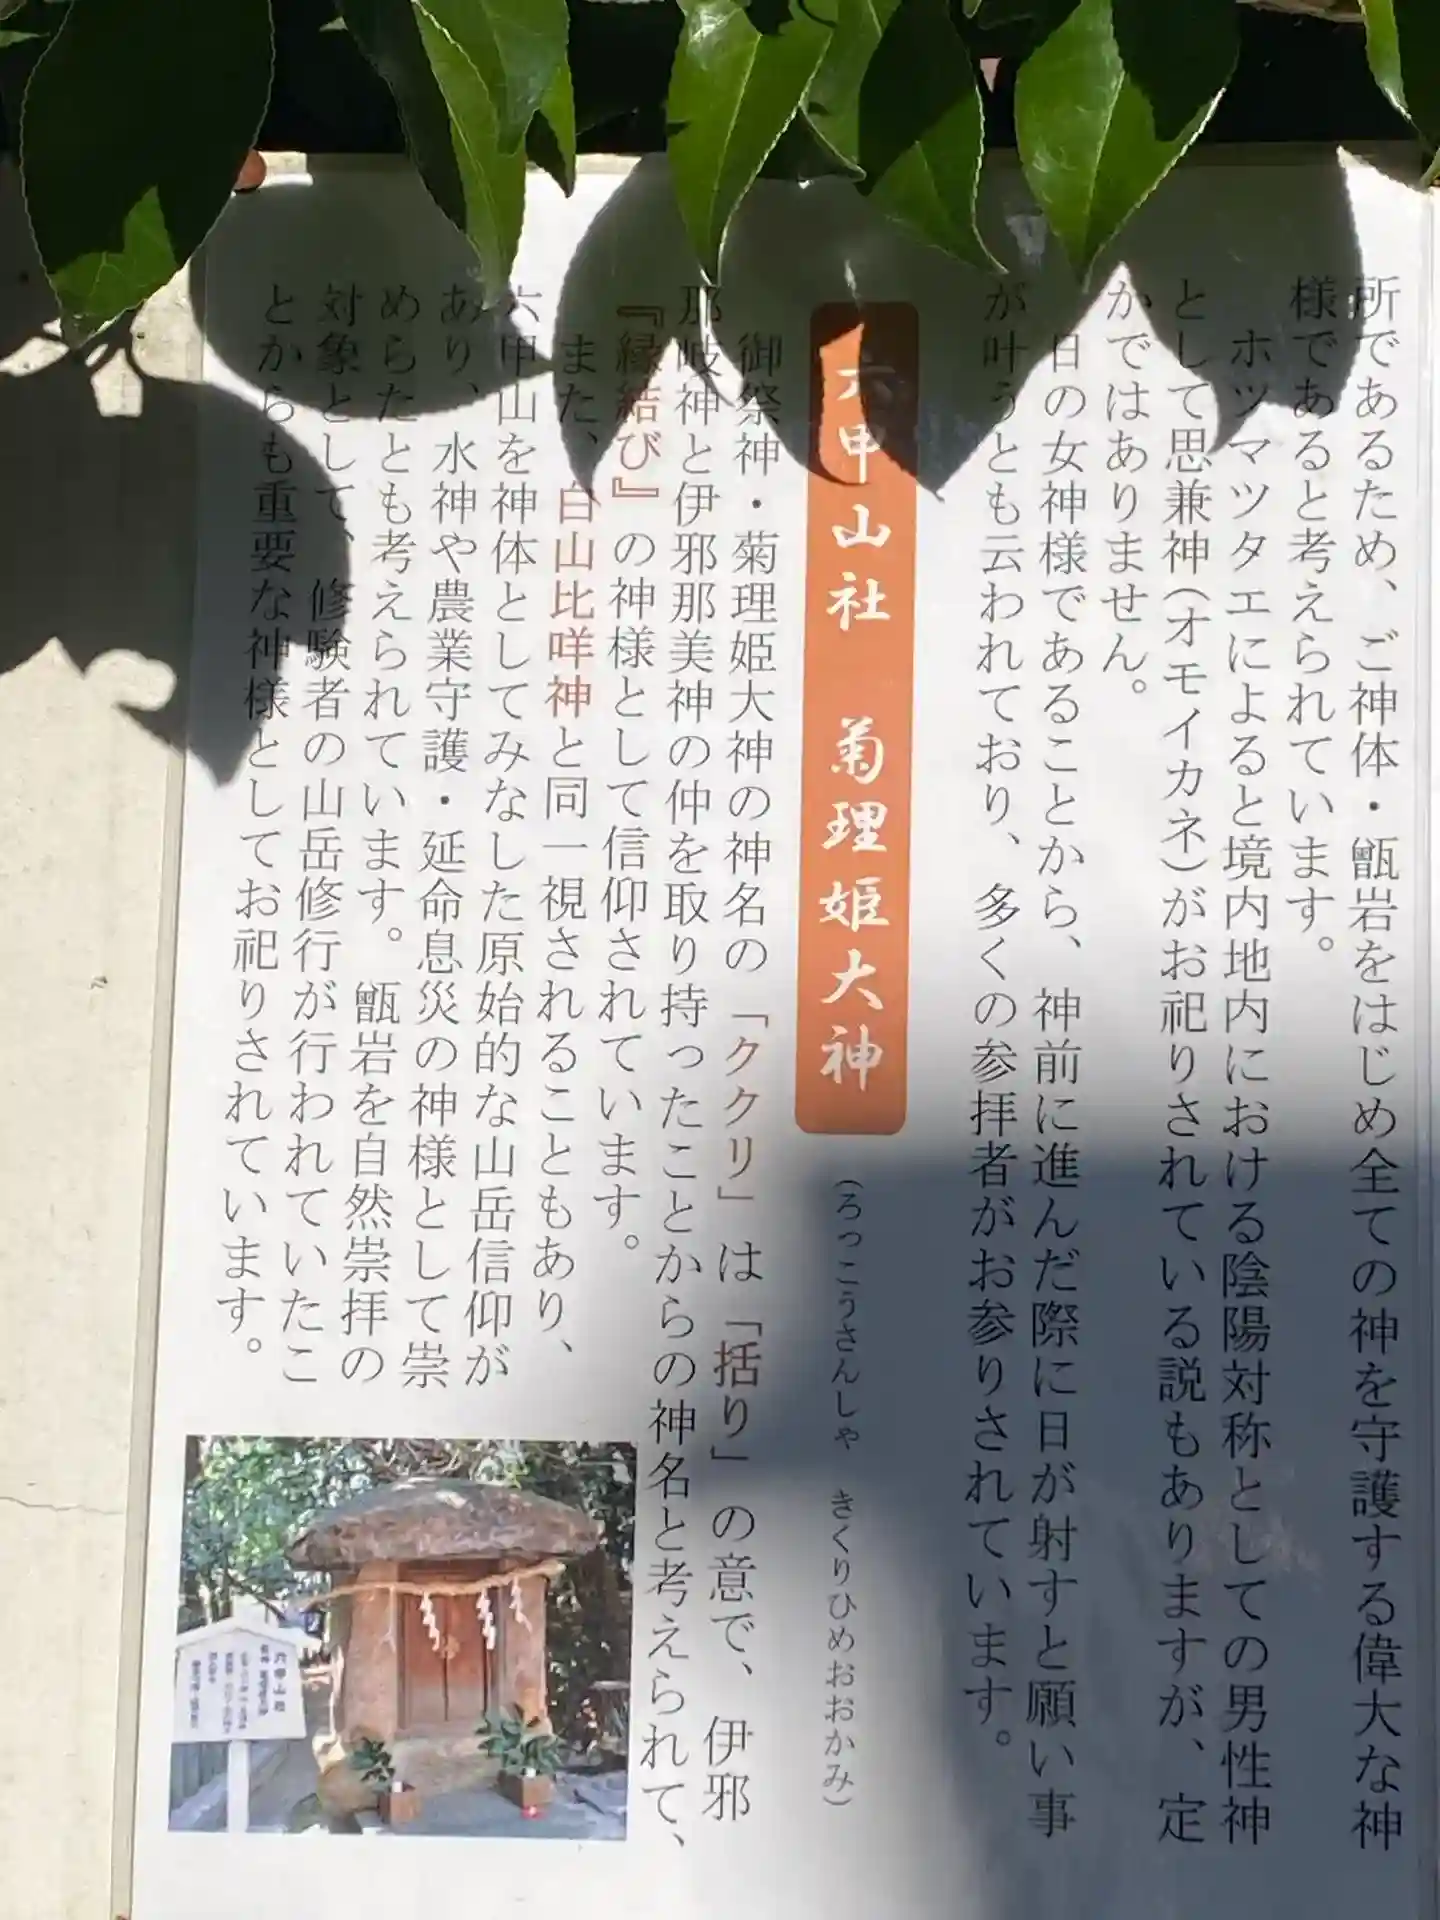 所であるため、ご神体・甑岩をはじめ全ての神を守護する偉大な神
様であると考えられています。
ホツマツタエによると境内地内における陰陽対称としての男性神
として思兼神(オモイカネ)がお祀りされている説もありますが、定
かではありません。
日の女神様であることから、神前に進んだ際に日が射すと願い事
が叶うとも云われており、多くの参拝者がお参りされています。
六甲山社 菊理姫大神
(ろっこうさんしゃ きくりひめおおかみ)
御祭神・菊理姫大神の神名の「ククリ」は「括り」の意で、伊邪
那岐神と伊邪那美神の仲を取り持ったことからの神名と考えられて、
『縁結び』の神様として信仰されています。
また、白山比咩神と同一視されることもあり、
六甲山を神体としてみなした原始的な山岳信仰が
あり、水神や農業守護・延命息災の神様として崇
められたとも考えられています。甑岩を自然崇拝の
対象として、修験者の山岳修行が行われていたこ
とからも重要な神様としてお祀りされています。
六甲山社